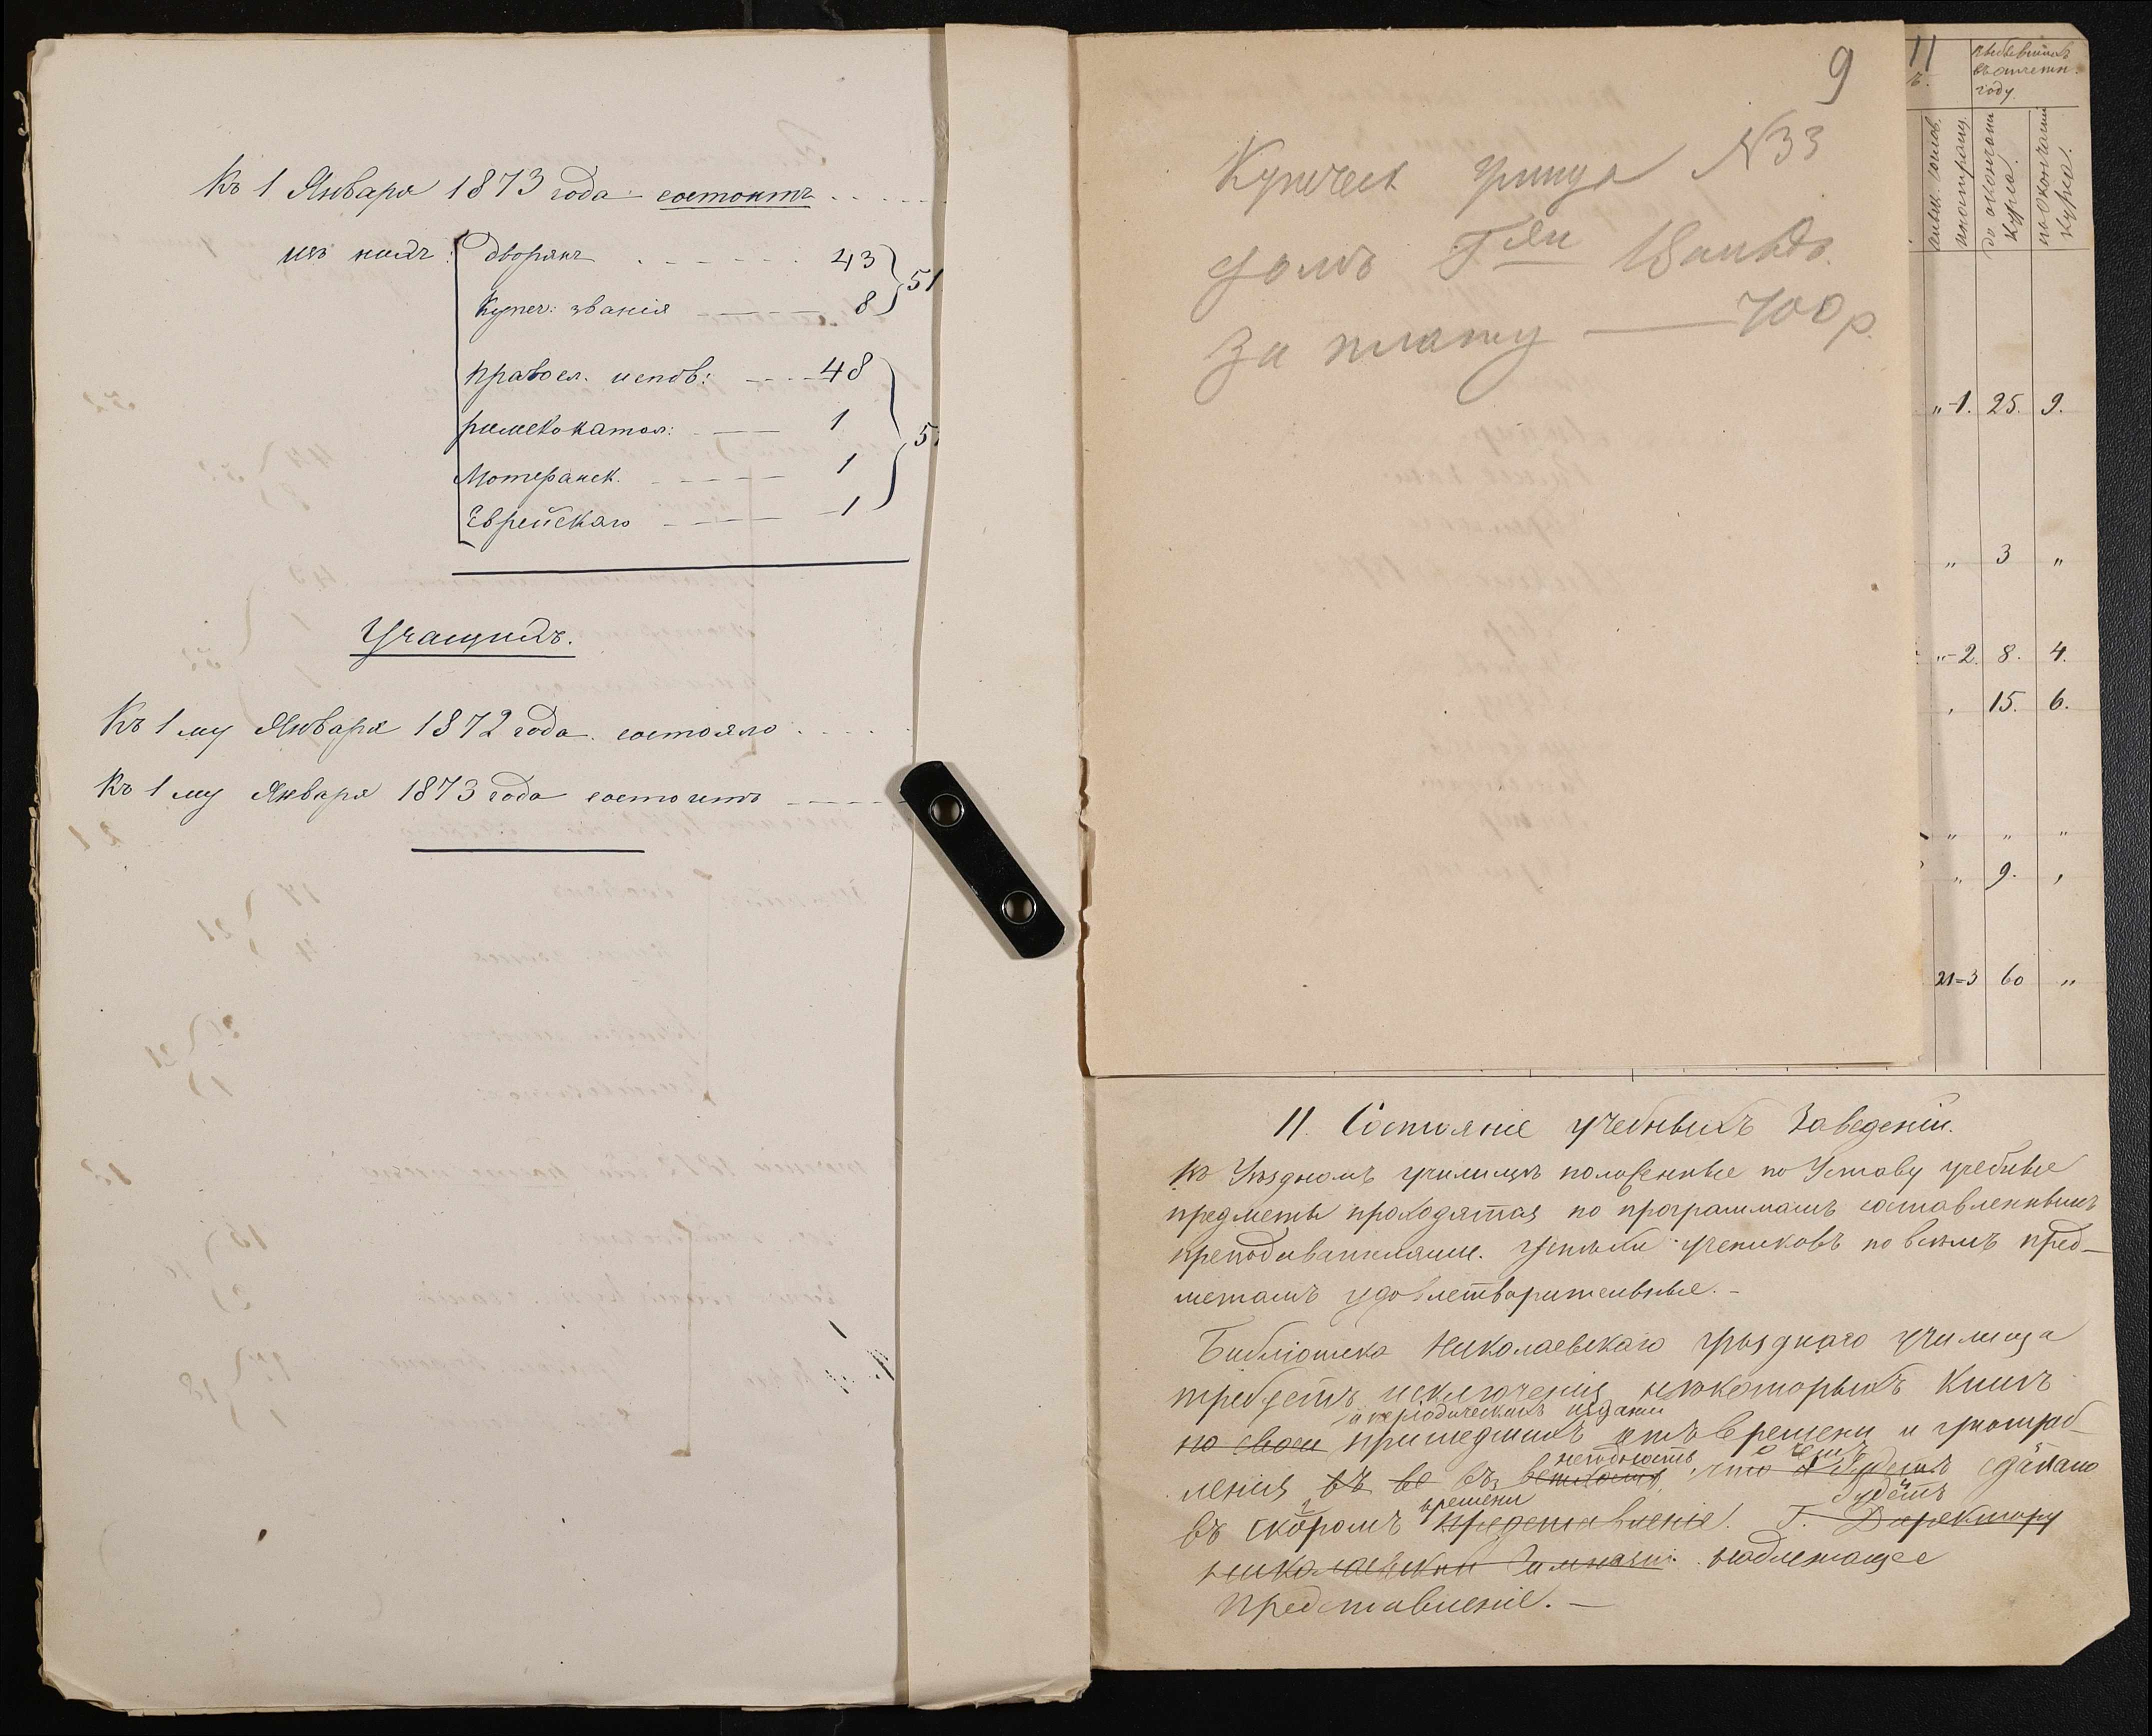 Къ 1 Января 1873 года состоитъ
изъ нихъ: дворянъ 43
купеч: званія 8 } 51
правосл. испов: 48
римскокатол: 1
Лютеранск. 1
Еврейскаго 1
Учащихъ.
Къ 1 му Января 1872 года состояло
Къ 1 му Января 1873 года состоитъ
9
улица N 33
домъ
За плату — 700 р.
11
выбывшихъ
въ отчетн.
году.
иностранц.
до окончани
курса.
по окончании
курса.
„ -1. 25. 9.
„ 3 „
„ -2. 8. 4.
15. 6.
„ „ „
„ 9. ,
21=3 60 „
II. Состояніе учебныхъ Заведеніи.
Въ Уѣздномъ училищѣ положенные по Уставу учебные
предметы проходятся по программамъ составленнымъ
преподавателями. Успѣхи учениковъ по всѣмъ пред-
метамъ удовлетворительные. -
Библіотека Николаевскаго уѣзднаго училища
требуетъ исключенія нѣкоторыхъ книгъ
и періодическихъ изданіи
пришедшихъ отъ времени и употреб-
негодность о чемъ
ленія въ въ ветхость, что и будетъ сдѣлано
времени будетъ
въ скоромъ представленіе. Г. Директору
Николаевской Гимназіи надлежащее
представленіе. —